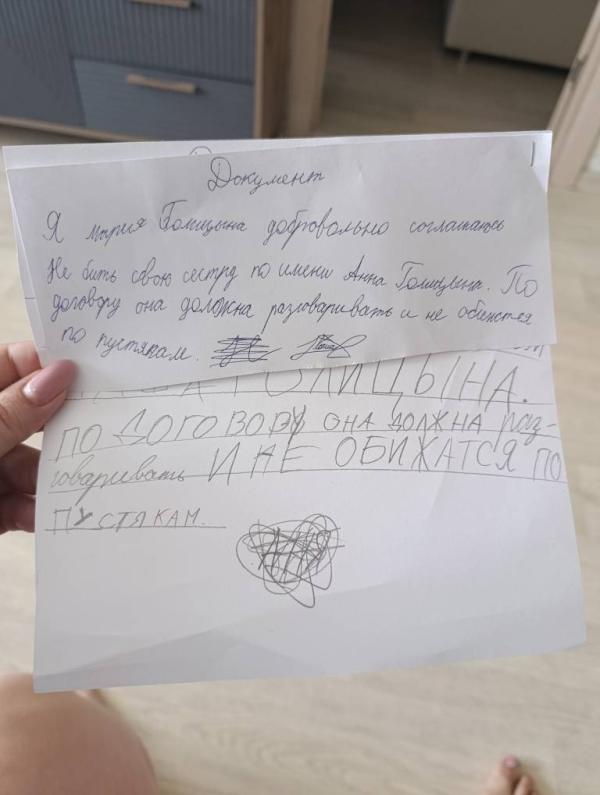 Документ
Я мария Голицына добровольно соглашаюсь
Не бить свою сестру по имени Анна Голицына. По
договору она должна разговаривать и не обежется
по пустякам.
ГОЛИЦЫНА.
ПО ДОГОВОРУ ОНА ДОЛЖНА раз-
говаривать И НЕ ОБИЖАТСЯ ПО
ПУСТЯКАМ.